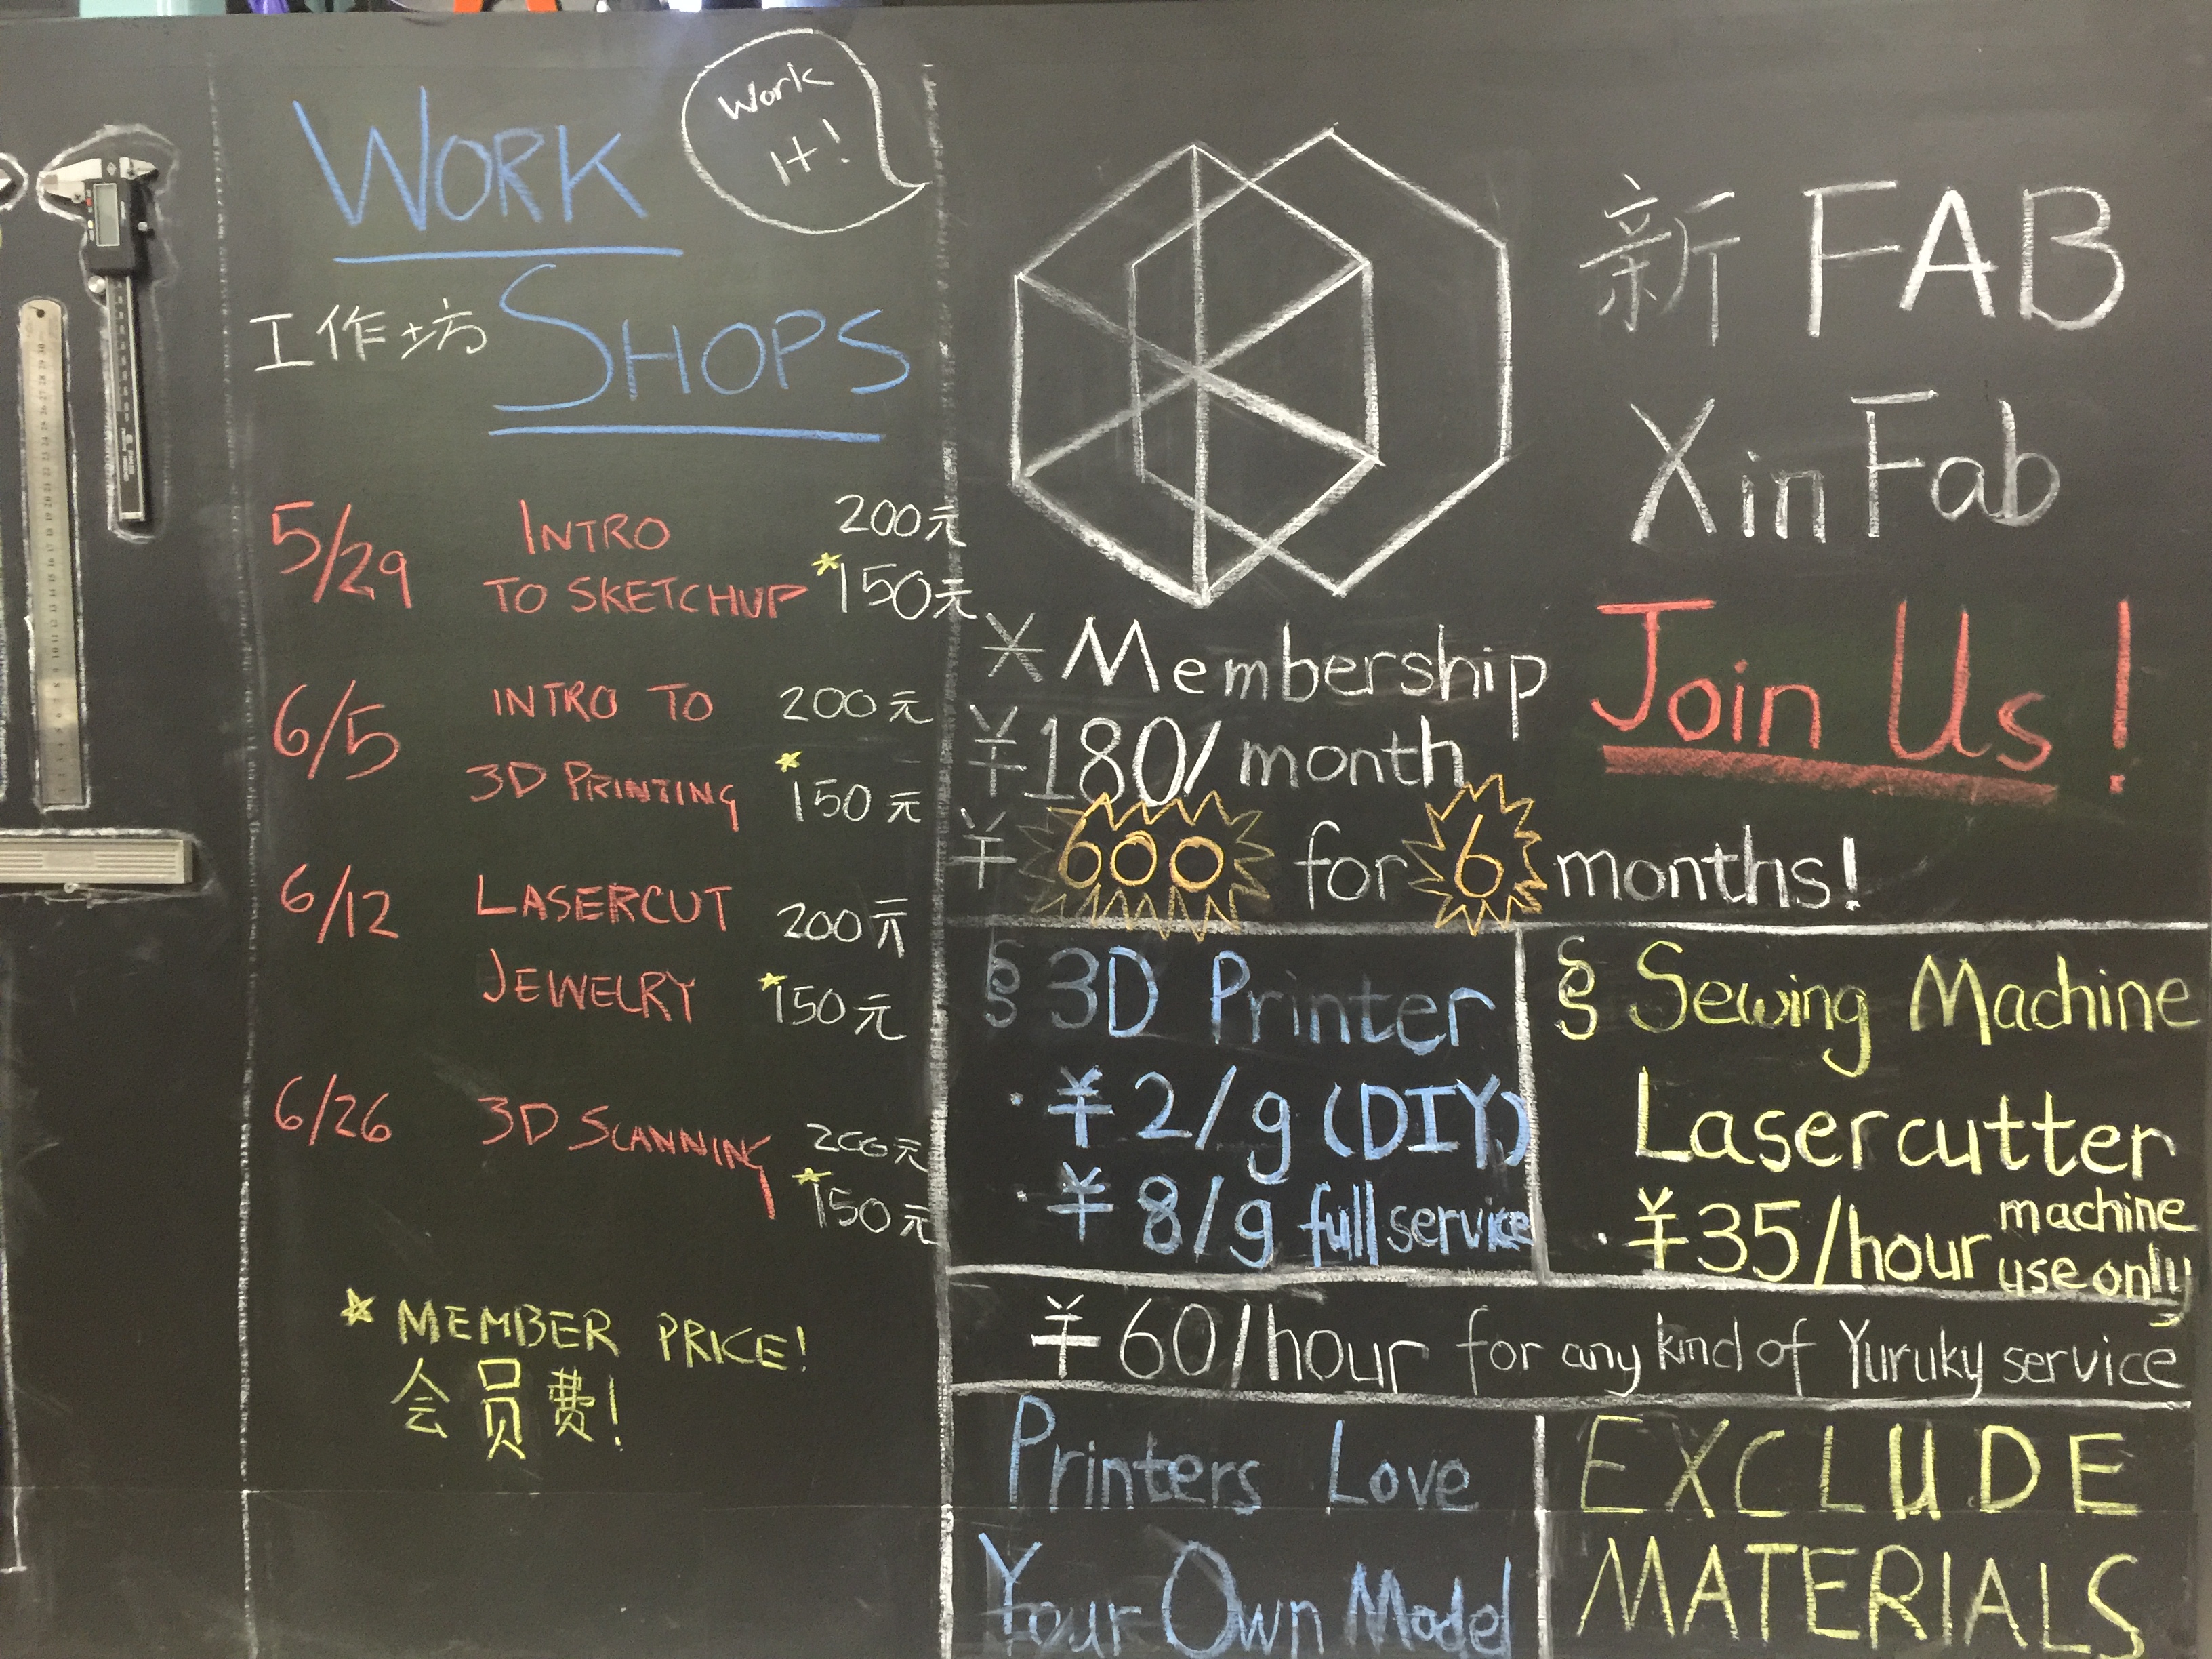 Work
It!
WORK
工作坊 SHOPS
5/29 INTRO 200元
TO SKETCHUP *150元
6/5 INTRO TO 200元
3D PRINTING *150元
6/12 LASERCUT 200元
JEWELRY *150元
6/26 3D SCANNING 200元
*150元
* MEMBER PRICE!
会员费!
新 FAB
XinFab
Join Us!
* Membership
¥180/month
¥ 600 for 6 months!
§ 3D Printer
· ¥ 2/g (DIY)
· ¥ 8/g full service
§ Sewing Machine
Lasercutter
· ¥35/hour machine
use only
¥60/hour for any kind of Yuruky service
Printers Love
Your Own Model
EXCLUDE
MATERIALS